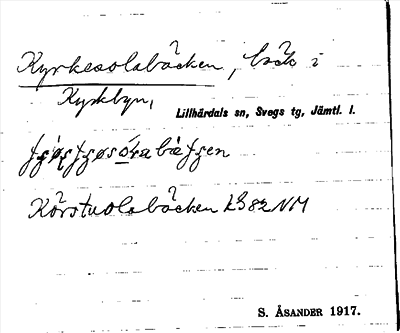 Kyrkesolabäcken, bäck i
Kyrkbyn,
Lillhärdals sn, Svegs tg, Jämtl. l.
Körstuolabäcken LS 82 NM
S. ÅSANDER 1917.